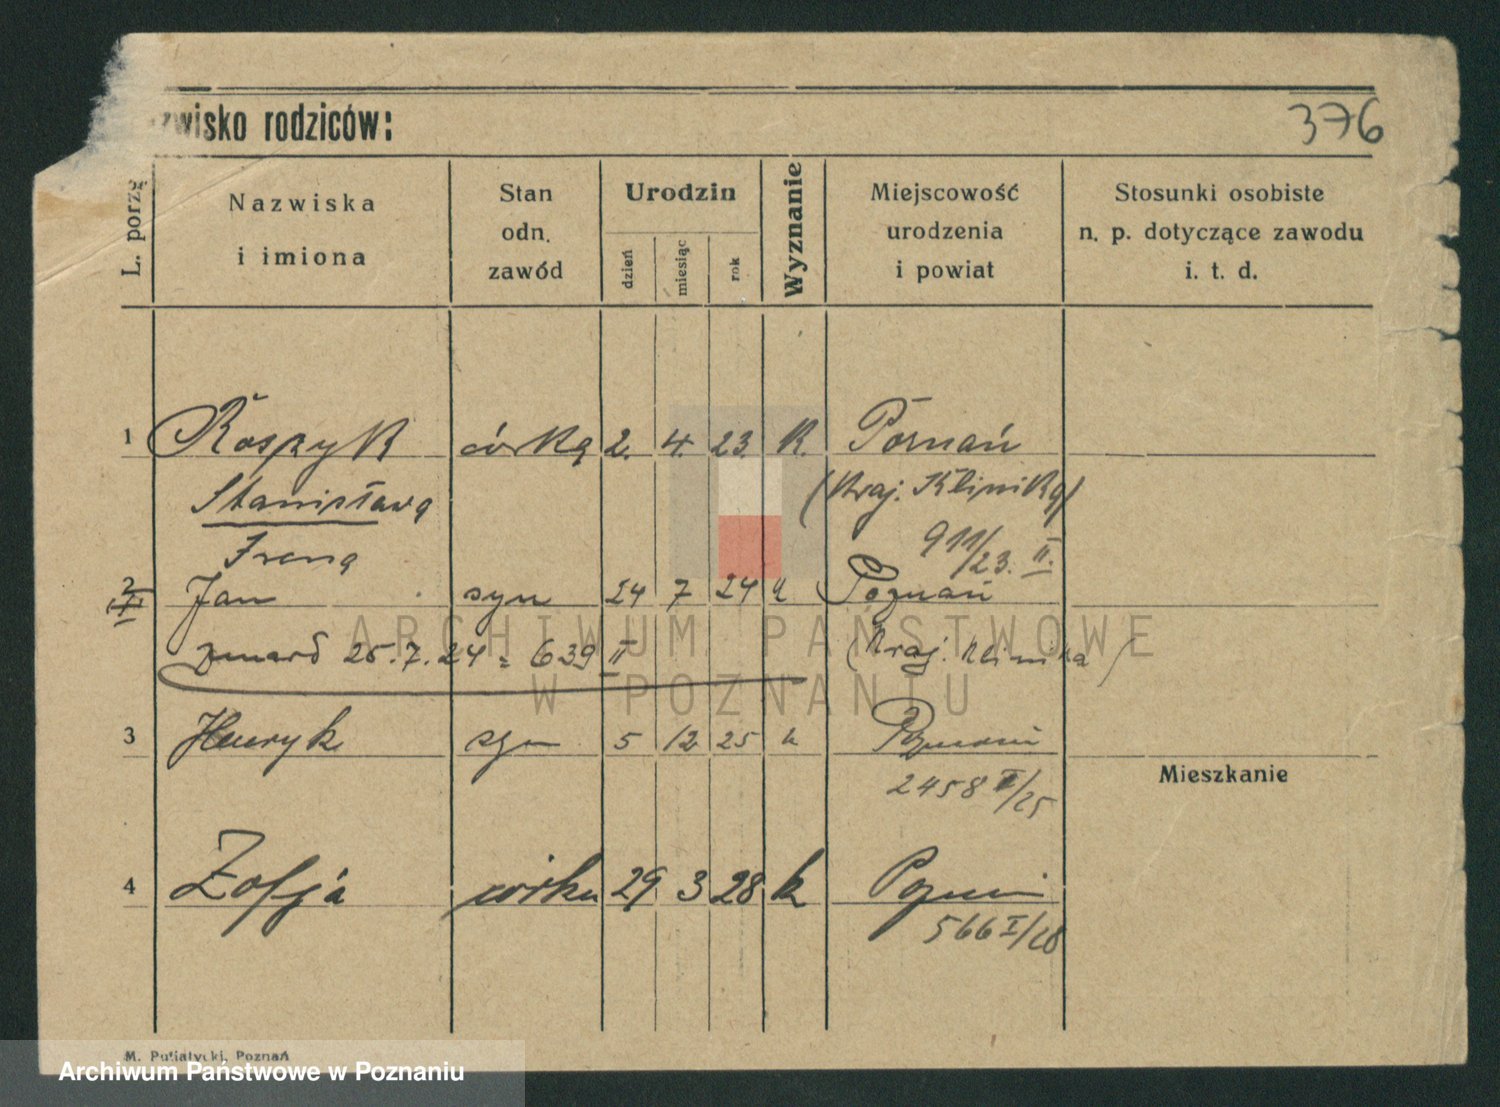 376
zwisko rodziców:
L. porzą
Nazwiska
i imiona
Stan
odn.
zawód
Urodzin
dzień
miesiąc
rok
Wyznanie
Miejscowość
urodzenia
i powiat
Stosunki osobiste
n. p. dotyczące zawodu
i. t. d.
1 córka 2. 4. 23. K. Poznań
Stanisława (Kraj. Klinika)
Irena 911/23. II.
2 Jan syn 24 7 24 k Poznań
zmarł 25.7.24 = 639 II (Kraj. Klinika)
3 Henryk syn 5 12 25 k Poznań
2458 II/25
Mieszkanie
4 Zofja córka 29 3 28 k Poznań
566 I/28
M. Putiatycki, Poznań
ARCHIWUM PAŃSTWOWE
W POZNANIU
Archiwum Państwowe w Poznaniu